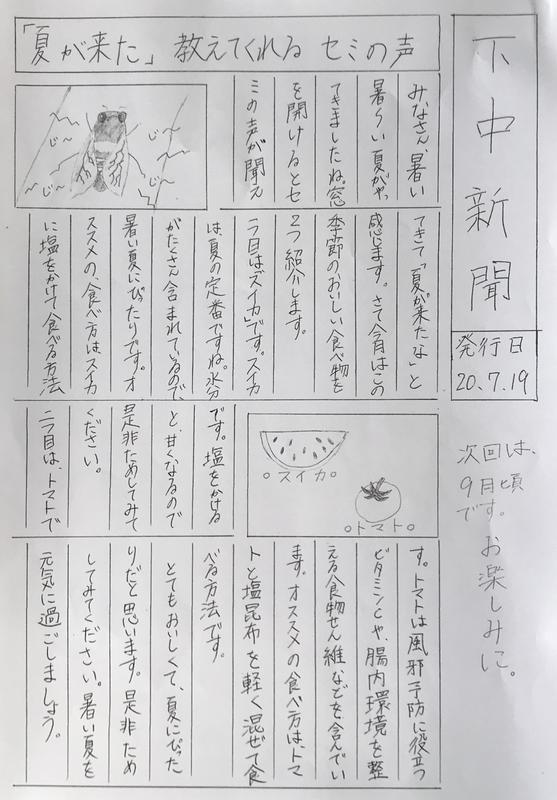 下中新聞
発行日
20.7.19
次回は、
9月頃
です。お楽しみに。
「夏が来た」教えてくれるセミの声
みなさん、暑い
暑〜い夏がやっ
てきましたね。窓
を開けるとセ
ミの声が聞え
じ〜
じ〜
じ〜
じ〜
てきて「夏が来たな」と
感じます。さて今月はこの
季節のおいしい食べ物を
2つ紹介します。
一つ目は「スイカ」です。スイカ
は夏の定番ですね。水分
がたくさん含まれているので
暑い夏にぴったりです。オ
ススメの、食べ方は、スイカ
に塩をかけて食べる方法
。スイカ。
。トマト。
です。塩をかける
と、甘くなるので
是非ためしてみて
ください。
二つ目は、トマトで
す。トマトは風邪予防に役立つ
ビタミンCや、腸内環境を整
える食物せん維などを含んでい
ます。オススメの食べ方は、トマ
トと塩昆布を軽く混ぜて食
べる方法です。
とてもおいしくて、夏にぴった
りだと思います。是非ため
してみてください。暑い夏を
元気に過ごしましょう。